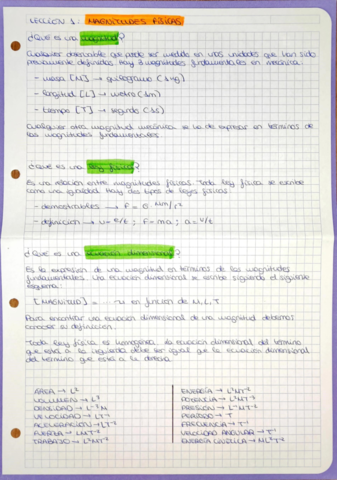 LECCIÓN 1: MAGNITUDES FÍSICAS
¿Qué es una magnitud?
Cualquier observable que puede ser medido en unas unidades que han sido
previamente definidas. Hay 3 magnitudes fundamentales en mecánica
- masa [M] → quilogramo (1kg)
- longitud [L] → metro (1m)
- tiempo [T] → segundo (1s)
Cualquier otra magnitud mecánica se ha de expresar en términos de
las magnitudes fundamentales.
¿Qué es una ley física?
Es una relación entre magnitudes físicas. Toda ley física se escribe
como una igualdad. Hay dos tipos de leyes físicas:
- demostrables → F = G · Mm/r²
- definición → v = e/t ; F = ma ; a = v/t
¿Qué es una ecuación dimensional?
Es la expresión de una magnitud en términos de las magnitudes
fundamentales. Una ecuación dimensional se escribe siguiendo el siguiente
esquema:
[MAGNITUD] = ... en función de M, L, T
Para encontrar una ecuación dimensional de una magnitud debemos
conocer su definición.
Toda ley física es homogénea: la ecuación dimensional del término
que está a la izquierda debe ser igual que la ecuación dimensional
del término que está a la derecha.
ÁREA → L²
VOLUMEN → L³
DENSIDAD → L⁻³M
VELOCIDAD → LT⁻¹
ACELERACIÓN → LT⁻²
FUERZA → LMT⁻²
TRABAJO → L²MT⁻²
ENERGÍA → L²MT⁻²
POTENCIA → L²MT⁻³
PRESIÓN → L⁻¹MT⁻²
PERÍODO → T
FRECUENCIA → T⁻¹
VELOCIDAD ANGULAR → T⁻¹
ENERGÍA CINÉTICA → ML²T⁻²